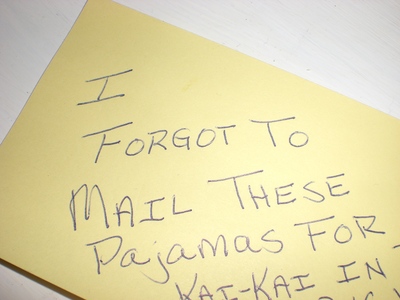 I
FORGOT TO
MAIL THESE
Pajamas FOR
KAI-KAI IN